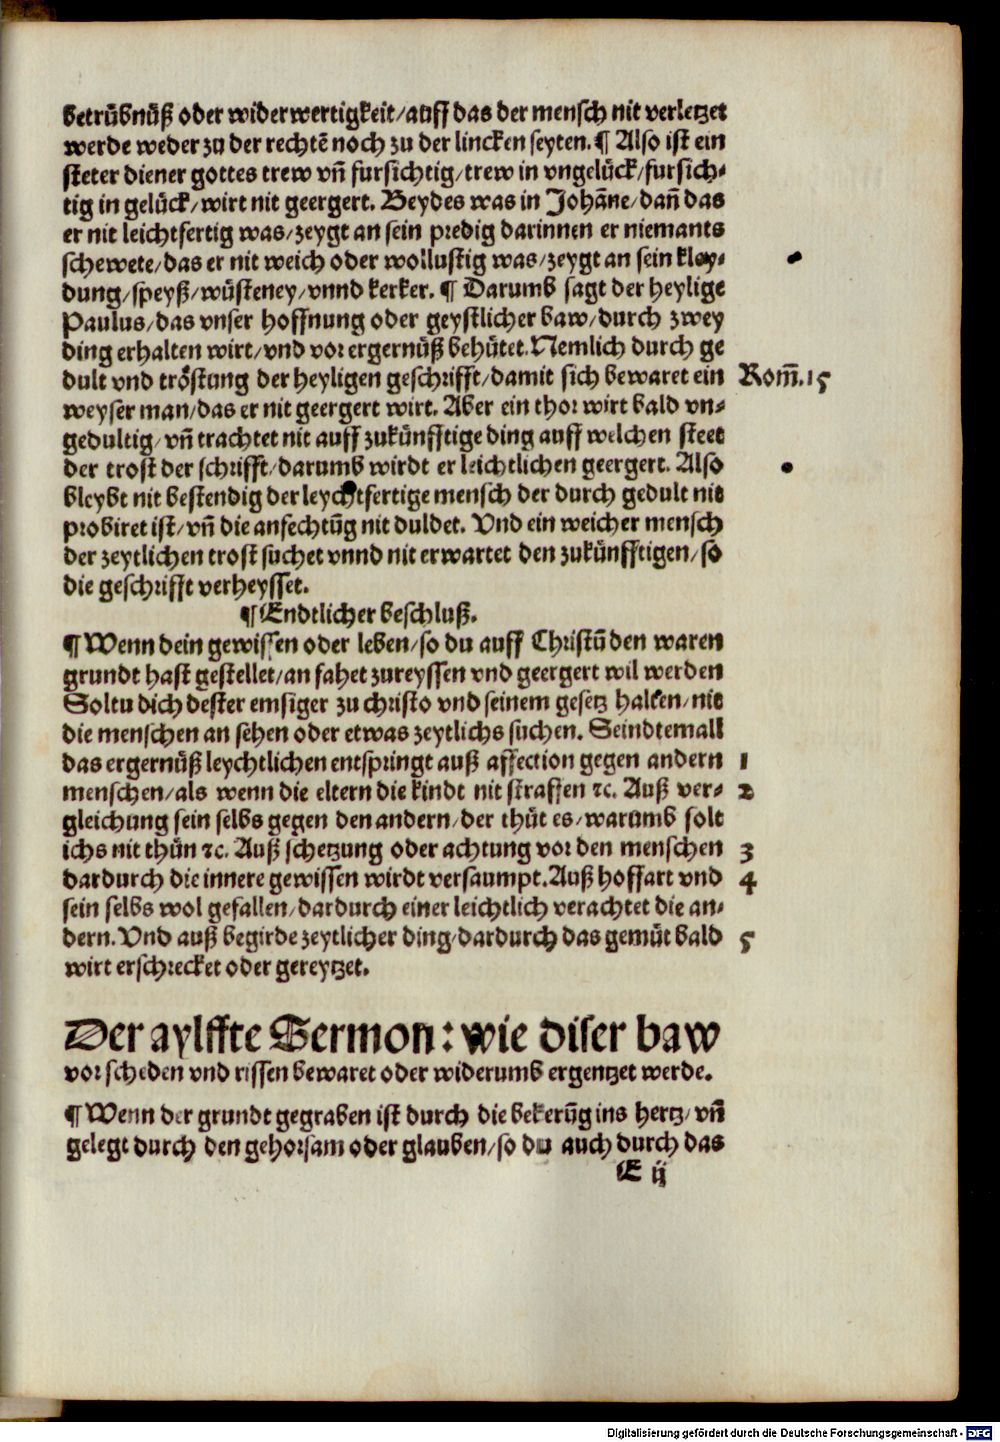 betrůbnůß oder widerwertigkeit/auff das der mensch nit verletzet
werde weder zu der rechtē noch zu der lincken seyten. ¶ Also ist ein
steter diener gottes trew vn̄ fursichtig/trew in vngelück/fursich⸗
tig in gelück/wirt nit geergert. Beydes was in Johāne/dan̄ das
er nit leichtfertig was/zeygt an sein predig darinnen er niemants
schewete/das er nit weich oder wollustig was/zeygt an sein kley⸗
dung/speyß/wüsteney/vnnd kerker. ¶ Darumb sagt der heylige
Paulus/das vnser hoffnung oder geystlicher baw/durch zwey
ding erhalten wirt/vnd vor ergernüß behütet. Nemlich durch ge
dult vnd tröstung der heyligen geschrifft/damit sich bewaret ein
Rom̄.15
weyser man/das er nit geergert wirt. Aber ein thor wirt bald vn⸗
gedultig/vn̄ trachtet nit auff zukünfftige ding auff welchen steet
der trost der schrifft/darumb wirdt er leichtlichen geergert. Also
bleybt nit bestendig der leychtfertige mensch der durch gedult nit
probiret ist/vn̄ die anfechtūg nit duldet. Vnd ein weicher mensch
der zeytlichen trost suchet vnnd nit erwartet den zukünfftigen/so
die geschrifft verheysset.
¶ Endtlicher beschluß.
¶ Wenn dein gewissen oder leben/so du auff Christū den waren
grundt hast gestellet/an fahet zureyssen vnd geergert wil werden
Soltu dich dester emsiger zu christo vnd seinem gesetz halten/nit
die menschen an sehen oder etwas zeytlichs suchen. Seindtemall
das ergernüß leychtlichen entspringt auß affection gegen andern 1
menschen/als wenn die eltern die kindt nit straffen ⁊c. Auß ver⸗ 2
gleichung sein selbs gegen den andern/der thůt es/warumb solt
ichs nit thůn ⁊c. Auß schetzung oder achtung vor den menschen 3
dardurch die innere gewissen wirdt versaumpt. Auß hoffart vnd 4
sein selbs wol gefallen/dardurch einer leichtlich verachtet die an⸗
dern. Vnd auß begirde zeytlicher ding/dardurch das gemüt bald 5
wirt erschrecket oder gereytzet.
Der aylffte Sermon: wie diser baw
vor scheden vnd rissen bewaret oder widerumb ergentzet werde.
¶ Wenn der grundt gegraben ist durch die bekerūg ins hertz/vn̄
gelegt durch den gehorsam oder glauben/so du auch durch das
E ij
Digitalisierung gefördert durch die Deutsche Forschungsgemeinschaft - DFG